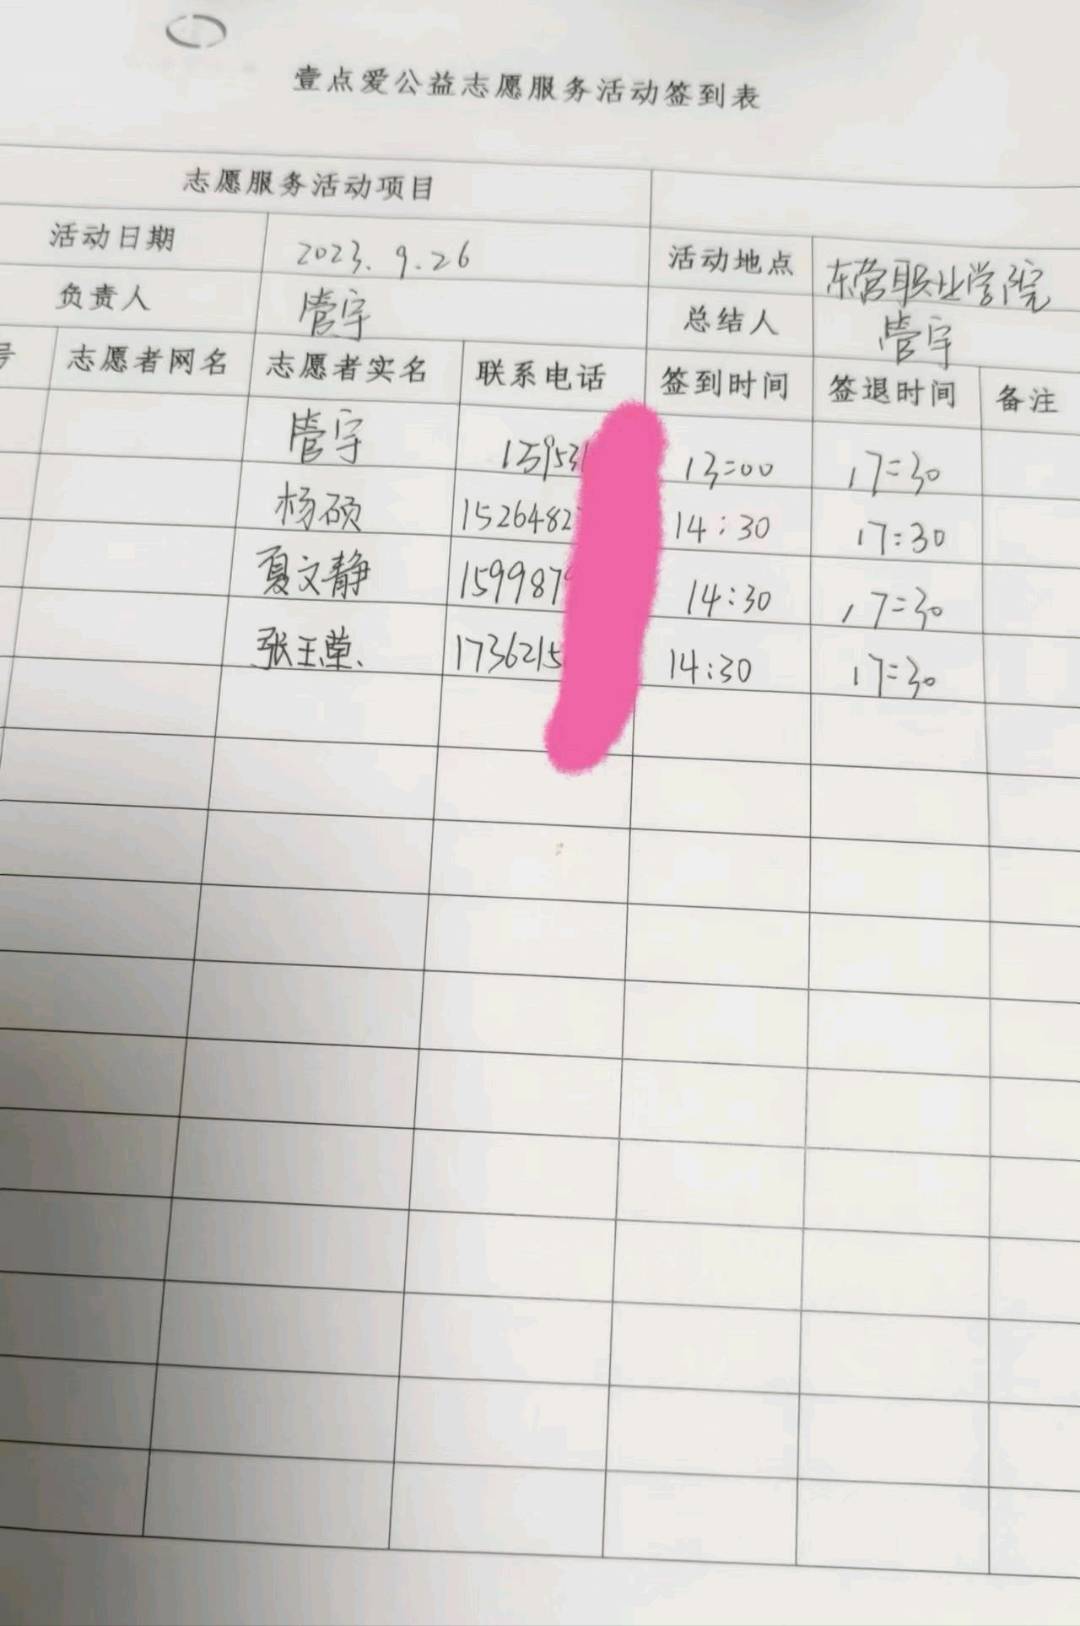 壹点爱公益志愿服务活动签到表
志愿服务活动项目
活动日期 2023.9.26 活动地点 东营职业学院
负责人 管宇 总结人 管宇
号 志愿者网名 志愿者实名 联系电话 签到时间 签退时间 备注
管宇 159531 13:00 17:30
杨硕 1526482 14:30 17:30
夏文静 159987 14:30 17:30
张玉莹 1736215 14:30 17:30